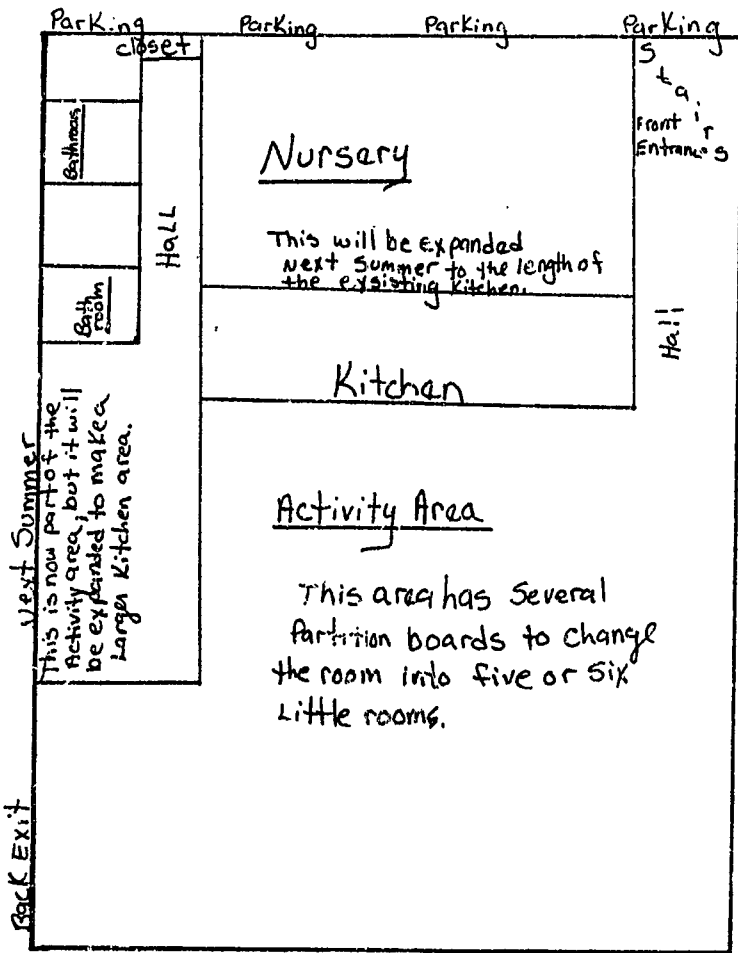 Parking Parking Parking Parking
closet
Stairs
Front
Entrance
Bathroom
Nursery
Hall
This will be Expanded
Next Summer to the length of
the exsisting Kitchen.
Bath
room
Hall
Kitchen
Next Summer
This is now part of the
Activity area, but it will
be expanded to make a
Larger Kitchen area.
Activity Area
This area has Several
Partition boards to change
the room into five or Six
Little rooms.
Back Exit